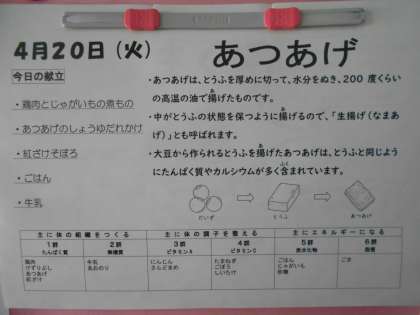 4月20日（火）
あつあげ
今日の献立
・鶏肉とじゃがいもの煮もの
・あつあげのしょうゆだれかけ
・紅ざけそぼろ
・ごはん
・牛乳
・あつあげは、とうふを厚めに切って、水分をぬき、200度くらい
の高温の油で揚げたものです。
・中がとうふの状態を保つように揚げるので、「生揚げ（なまあ
げ）」とも呼ばれます。
・大豆から作られるとうふを揚げたあつあげは、とうふと同じよう
にたんぱく質やカルシウムが多く含まれています。
だいず とうふ あつあげ
主に体の組織をつくる 主に体の調子を整える 主にエネルギーになる
1群 2群 3群 4群 5群 6群
たんぱく質 無機質 ビタミンA ビタミンC 炭水化物 脂質
鶏肉 牛乳 にんじん たまねぎ ごはん ごま
けずりぶし あおのり さんどまめ ごぼう じゃがいも
あつあげ しいたけ 砂糖
紅ざけ